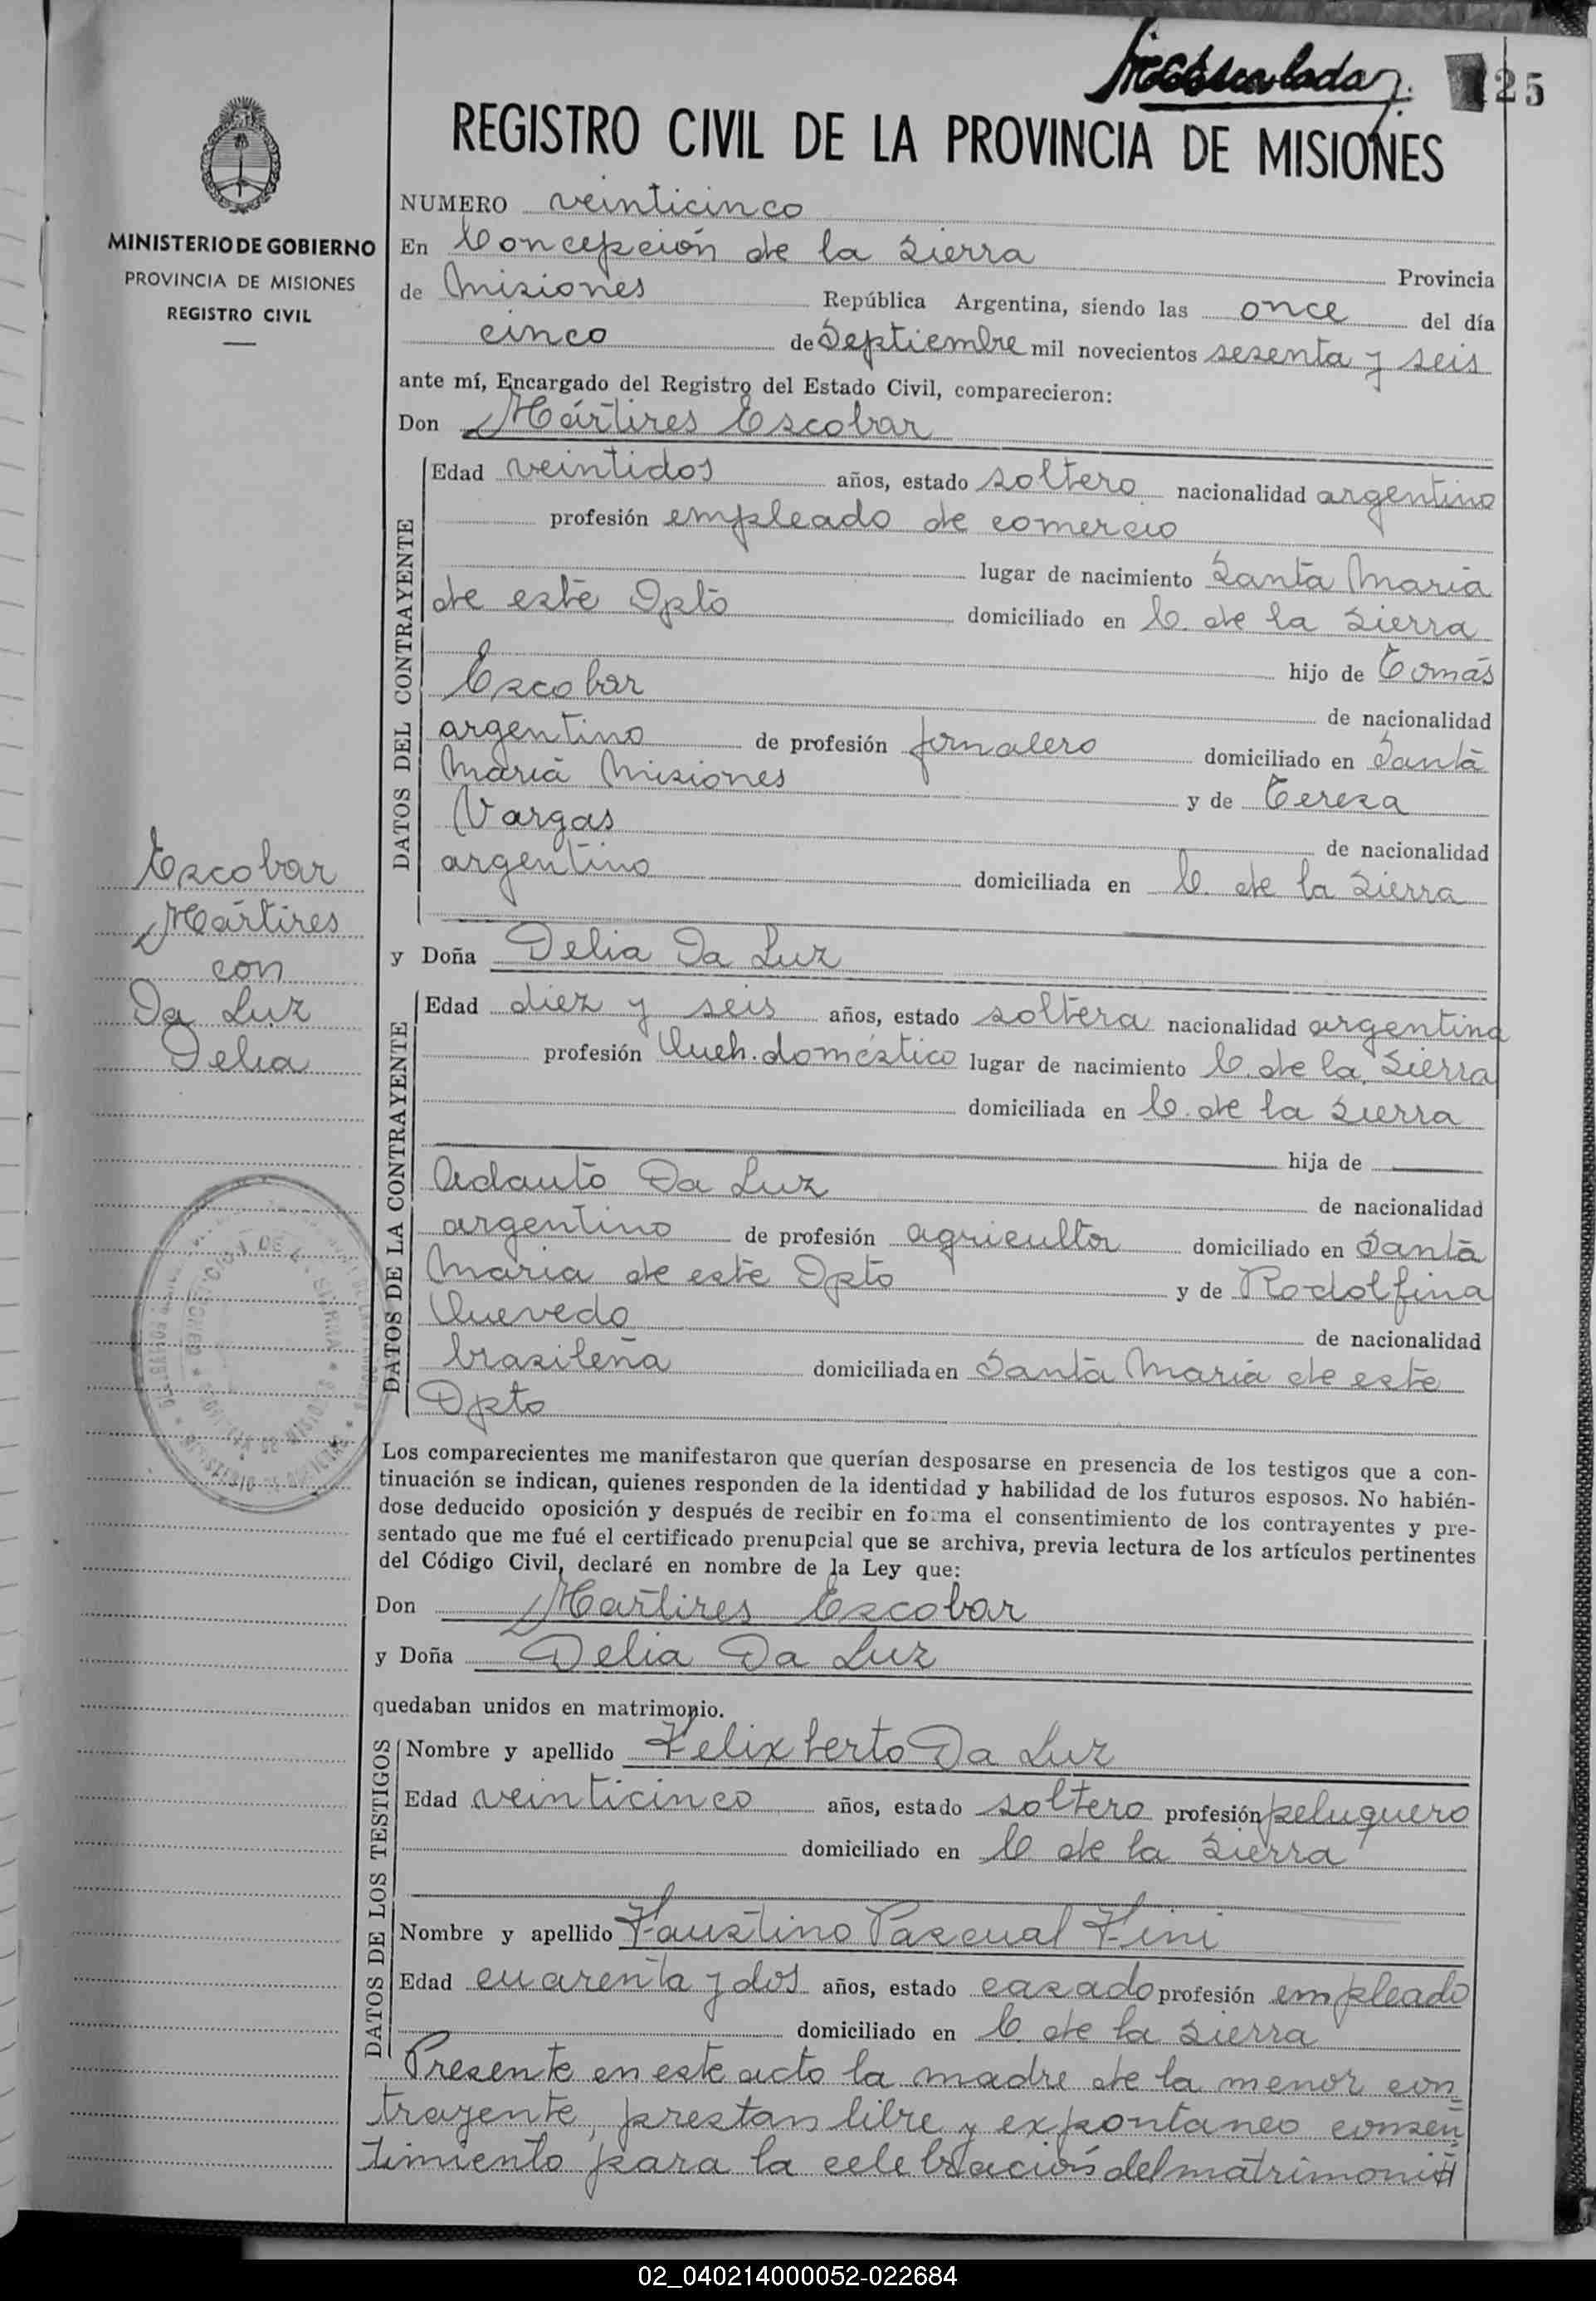 25
REGISTRO CIVIL DE LA PROVINCIA DE MISIONES
MINISTERIO DE GOBIERNO
PROVINCIA DE MISIONES
REGISTRO CIVIL
NUMERO veinticinco
En Concepción de la Sierra Provincia
de Misiones República Argentina, siendo las once del día
cinco de Septiembre mil novecientos sesenta y seis
ante mí, Encargado del Registro del Estado Civil, comparecieron:
Don Mártires Escobar
DATOS DEL CONTRAYENTE
Edad veintidos años, estado soltero nacionalidad argentino
profesión empleado de comercio
lugar de nacimiento Santa María
de este Dpto domiciliado en C. de la Sierra
hijo de Tomás
Escobar de nacionalidad
argentino de profesión jornalero domiciliado en Santa
María Misiones y de Teresa
Vargas de nacionalidad
argentino domiciliada en C. de la Sierra
Escobar
Mártires
con
Da Luz
Delia
y Doña Delia Da Luz
DATOS DE LA CONTRAYENTE
Edad diez y seis años, estado soltera nacionalidad argentina
profesión Queh. doméstico lugar de nacimiento C. de la Sierra
domiciliada en C. de la Sierra
hija de
Adauto Da Luz de nacionalidad
argentino de profesión agricultor domiciliado en Santa
María de este Dpto y de Rodolfina
Quevedo de nacionalidad
brasileña domiciliada en Santa María de este
Dpto
Los comparecientes me manifestaron que querían desposarse en presencia de los testigos que a con-
tinuación se indican, quienes responden de la identidad y habilidad de los futuros esposos. No habién-
dose deducido oposición y después de recibir en forma el consentimiento de los contrayentes y pre-
sentado que me fué el certificado prenupcial que se archiva, previa lectura de los artículos pertinentes
del Código Civil, declaré en nombre de la Ley que:
Don Mártires Escobar
y Doña Delia Da Luz
quedaban unidos en matrimonio.
DATOS DE LOS TESTIGOS
Nombre y apellido Felixberto Da Luz
Edad veinticinco años, estado soltero profesión peluquero
domiciliado en C de la Sierra
Nombre y apellido Faustino Pascual Fini
Edad cuarenta y dos años, estado casado profesión empleado
domiciliado en C. de la Sierra
Presente en este acto la madre de la menor con=
trayente, prestan libre y expontaneo consen=
timiento para la celebración del matrimonio
02_040214000052-022684